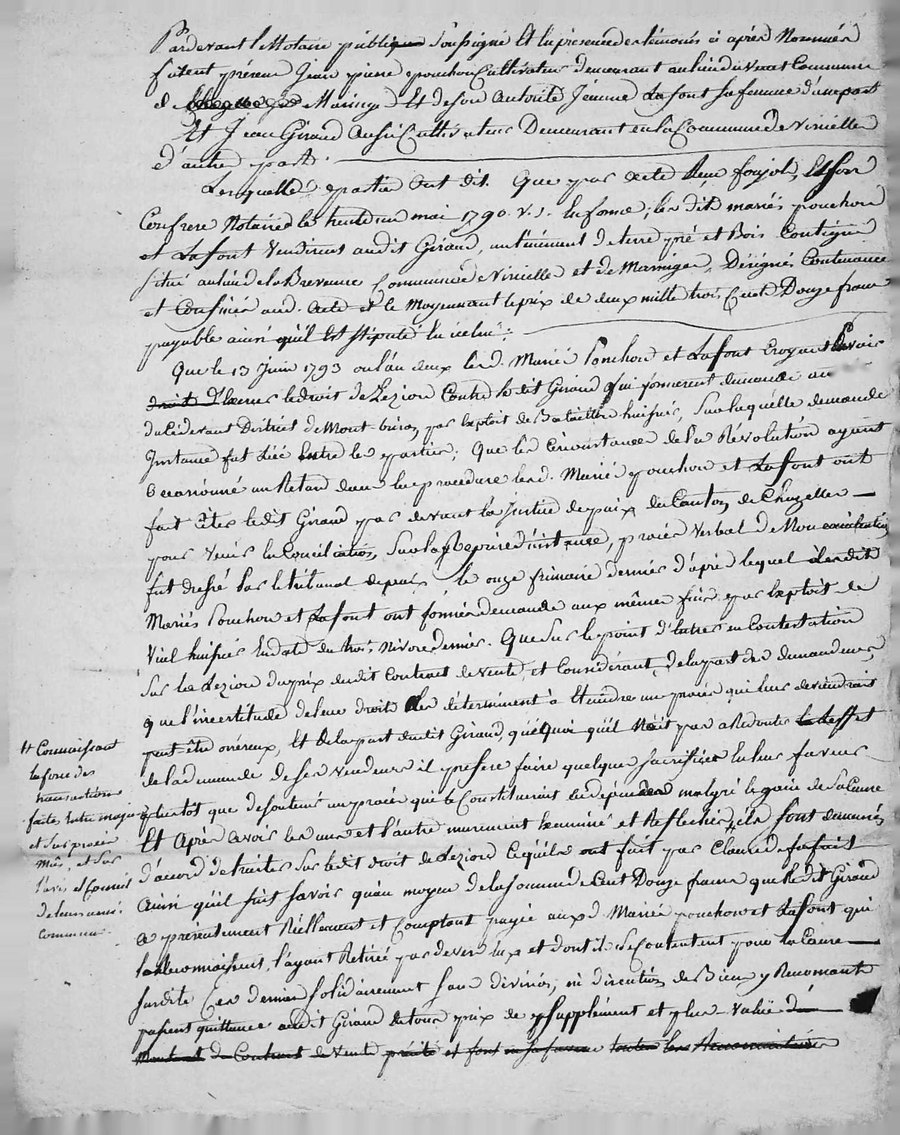 Pardevant le Notaire public soussigné Et en présence des témoins ci après Nommés
furent présens Jean pierre pouchon Cultivateur demeurant au lieu du verat Commune
de Maringe Et de son autorité Jeanne Lafont sa femme d'une part
Et Jean Giraud aussi Cultivateur Demeurant en la Commune de viricelle
d'autre part.
Lesquelles parties ont dit. Que par acte Reçu foujol, Et son
Confrere Notaires le trente un mai 1790. v. s. En forme; les dits mariés pouchon
et Lafont Vendirent audit Giraud, un ténement de terre pré et Bois Contigus
situé au lieu de la Brevenne Commune de viricelle et de Maringe, Désignés Contenance
et Confinés aud. acte et le Moyennant le prix de deux mille trois Cent Douze francs
payable ainsi qu'il Est stipulé En icelui.
Que le 13 Juin 1793 ou l'an deux les d. Mariés Pouchon et Lafont Croyant avoir
le droit de Lezion Contre le dit Giraud formerent demande au
du Cidevant District de Mont-brison par Exploit de huissier, Sur laquelle demande
Instance fut liée Entre les parties; Que les Circonstances de la Révolution ayant
Occasionné un Retard dans la procedure les d. Mariés pouchon et Lafont ont
fait Citer le dit Giraud par devant la Justice de paix du Canton de Chazelles
pour Venir En Conciliation, Sur la Reprise d'instance, procès Verbal de Non conciliation
fut dressé par le tribunal de paix le onze frimaire dernier d'après lequel les dits
Mariés Pouchon et Lafont ont formés demande aux même fins par Exploit de
Vial huissier En date du trois Nivose dernier. Que Sur le point d'Entrer en Contestation
Sur la Lezion du prix dudit Contrat de vente, et Considérant, de la part des demandeurs,
que l'incertitude de leur droit les déterminent à Eteindre un procès qui leur deviendrait
peut-être onéreux, Et de la part dudit Giraud, quoiqu'il N'ait pas à Redouter l'Effet
de la demande de ses Vendeurs il préfere faire quelque Sacrifice En leur faveur
plutot que de soutenir un procès qui le Constituerait En dépenses malgré le gain de Sa Cause
Et Après avoir les uns et l'autre murement Examiné et Reflechir, ils sont demeurés
d'accord de traiter Sur ledit droit de Lezion Ce qu'ils ont fait par
Ainsi qu'il suit savoir qu'au moyen de la somme de Cent Douze francs que le dit Giraud
a présentement Réellement et Comptant payée aux d. Mariés pouchon et Lafont qui
le Reconnaissent, l'ayant Retirée par devers Eux et dont ils se Contentent pour la Cause
susdite Ces derniers solidairement sans division, ni discution de Biens y Renonçant
passent quittance audit Giraud de tous prix de supplément et plus-Value du
Montant du Contrat de Vente précité et font en sa faveur toutes les Renonciations
# Connaissant
la force des
transactions
faites Entre majeurs
et Sur procès
Mûs, et Sur
l'avis et Conseil
de leurs amis
communs.